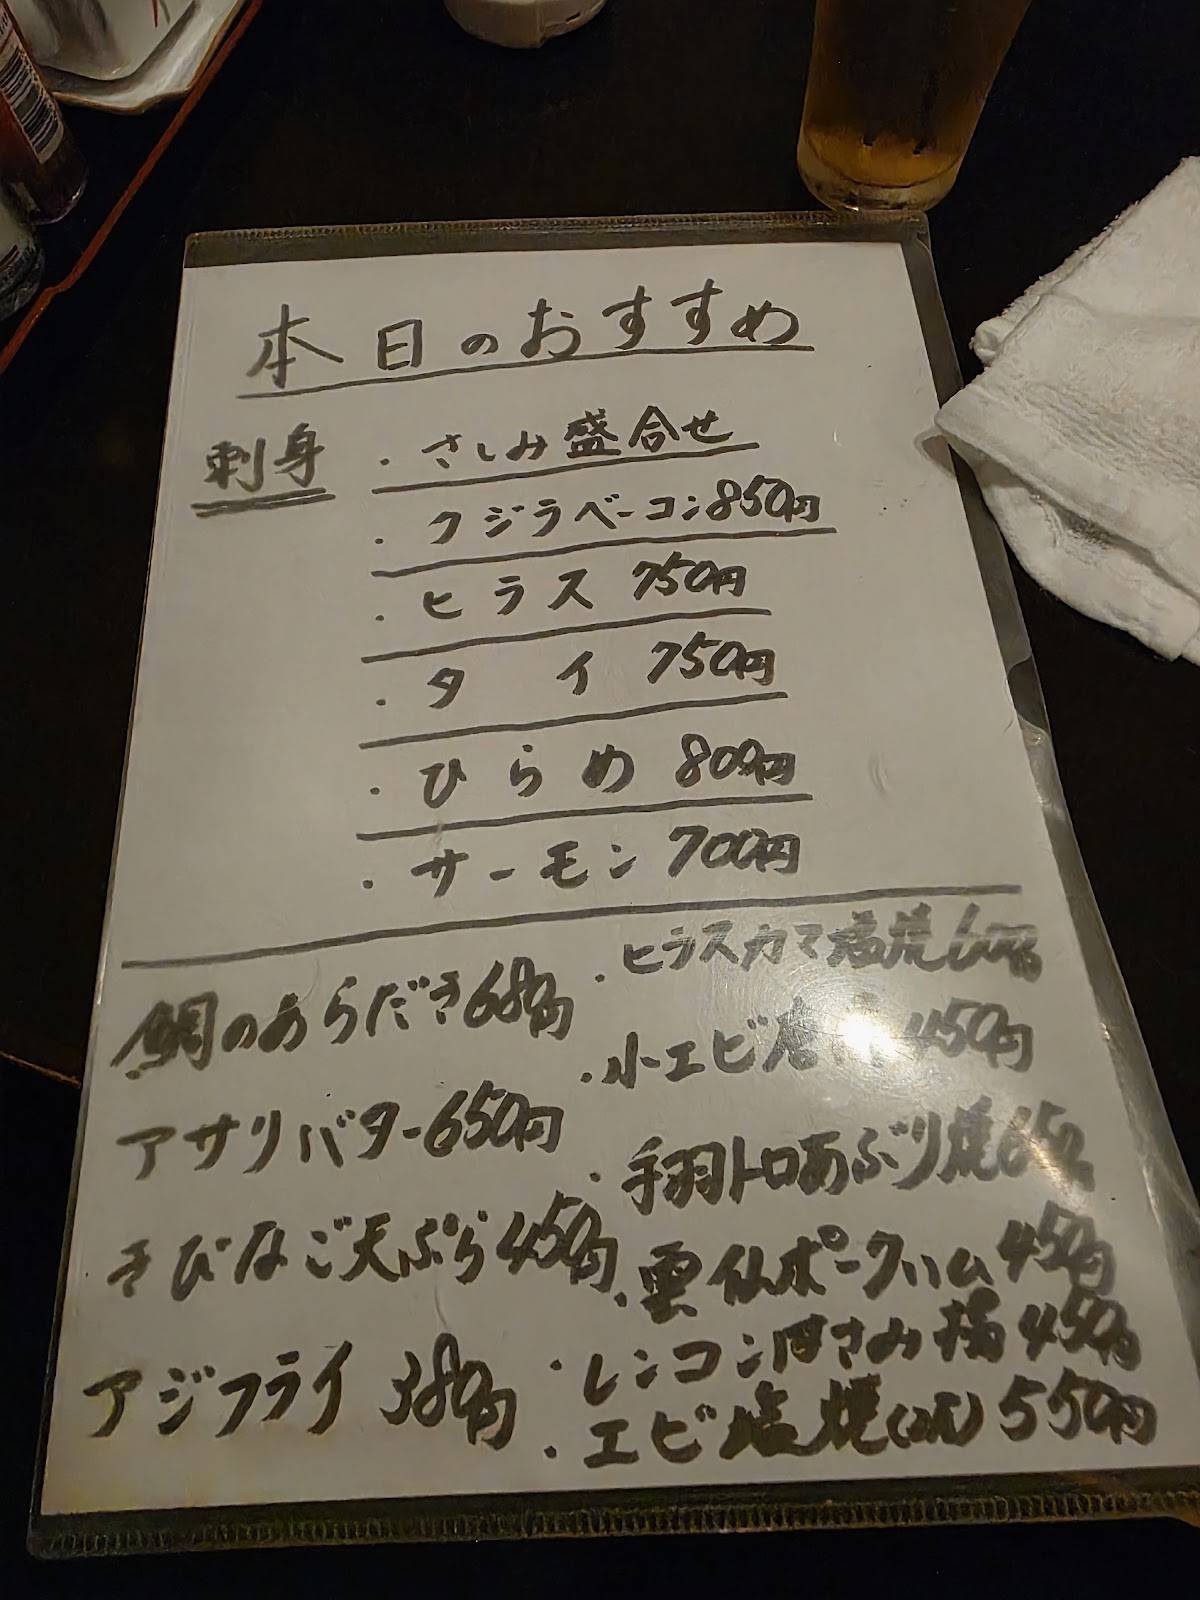 本日のおすすめ
刺身
・さしみ盛合せ
・クジラベーコン850円
・ヒラス 750円
・タイ 750円
・ひらめ 800円
・サーモン 700円
鯛のあらだき680円
アサリバター650円
きびなご天ぷら450円
アジフライ 380円
・ヒラスカマ塩焼600円
・小エビ唐 450円
・手羽トロあぶり焼650
・雲仙ポークハム450円
・レンコンはさみ揚450円
・エビ塩焼(2尾)550円